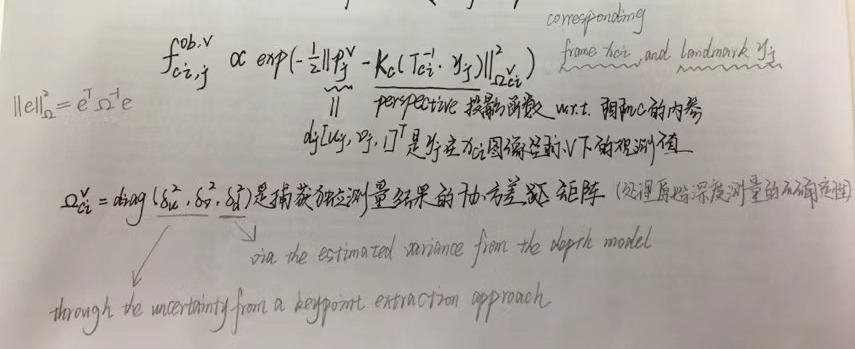 corresponding
frame x_ci, and landmark y_j
f_{ci,j}^{ob,v} ∝ exp(-½||p_j^v - K_c(T_{ci}^{-1}·y_j)||²_{Ω_{ci}^v})
||e||²_Ω = e^T Ω^{-1} e
|| perspective 投影函数 w.r.t. 相机c的内参
d_j[u_j, v_j, 1]^T 是y_j在 x_ci图像坐标v下的观测值
Ω_{ci}^v = diag(δ_u², δ_v², δ_d²)是捕获独立测量结果的协方差矩阵 (处理原始深度测量的不确定性)
via the estimated variance from the depth model
through the uncertainty from a keypoint extraction approach